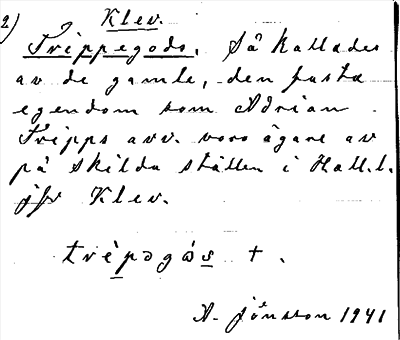 2)
Klev.
Trippegods. Så kallades
av de gamle, den fasta
egendom som Adrian
Tripps arv. voro ägare av
på skilda ställen i Hall.l.
jfr Klev.
trèpəgɷs +.
A. Jönsson 1941